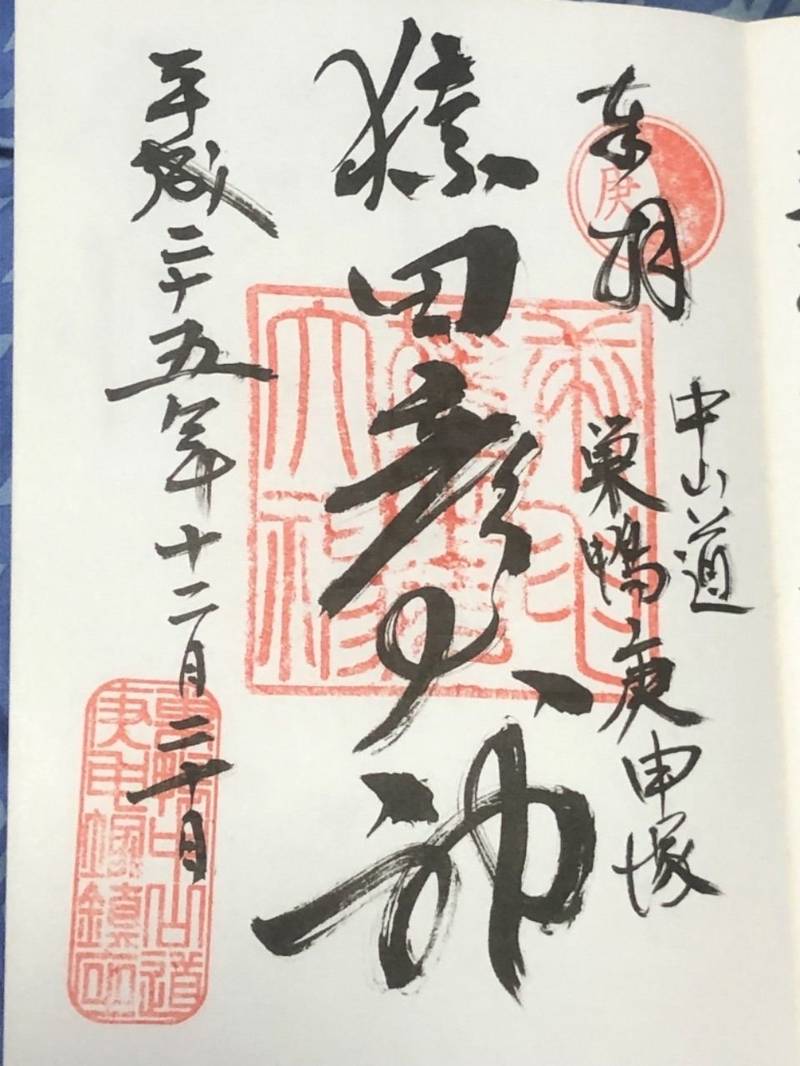 奉拝
庚
中山道
巣鴨庚申塚
猿田彦大神
平成二十五年十二月二十日
巣鴨中山道
庚申塚鎮座